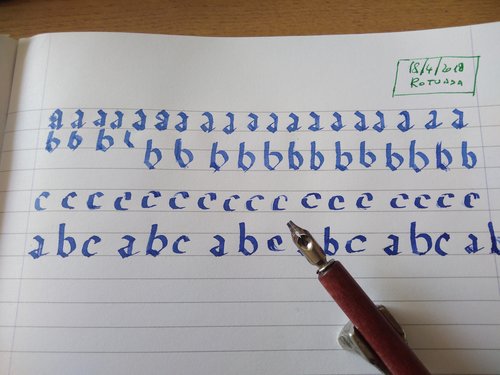 18/4/2018
ROTUNDA
a a a a a a a a a a a a a a a a a a a
b b b b b b b b b b b b b b b b
c c c c c c c c c c c c c c c c c
abc abc abc bc abc ab